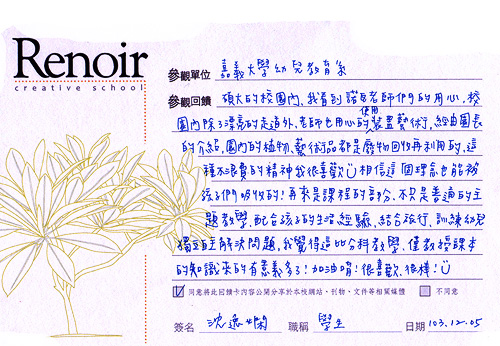 Renoir
creative school
參觀單位 嘉義大學幼兒教育系
參觀回饋 碩大的校園內、我看到諾貝老師們的用心，校
園內除了漂亮的走道外、老師也用心的使用裝置藝術，經由園長
的介紹，園內的植物、藝術品都是廢物回收再利用的，這
種不浪費的精神我很喜歡 相信這個理念也能被
孩子們吸收的！再來是課程的部分、不只是普通的主
題教學，配合孩子的生活經驗，結合旅行、訓練幼兒
獨立自主解決問題，我覺得這比分科教學、僅教授課本
的知識來的有意義多了！加油唷！很喜歡、很棒！
同意將此回饋卡內容公開分享於本校網站、刊物、文件等相關媒體 不同意
簽名 沈逸嫻 職稱 學生 日期 103.12.05